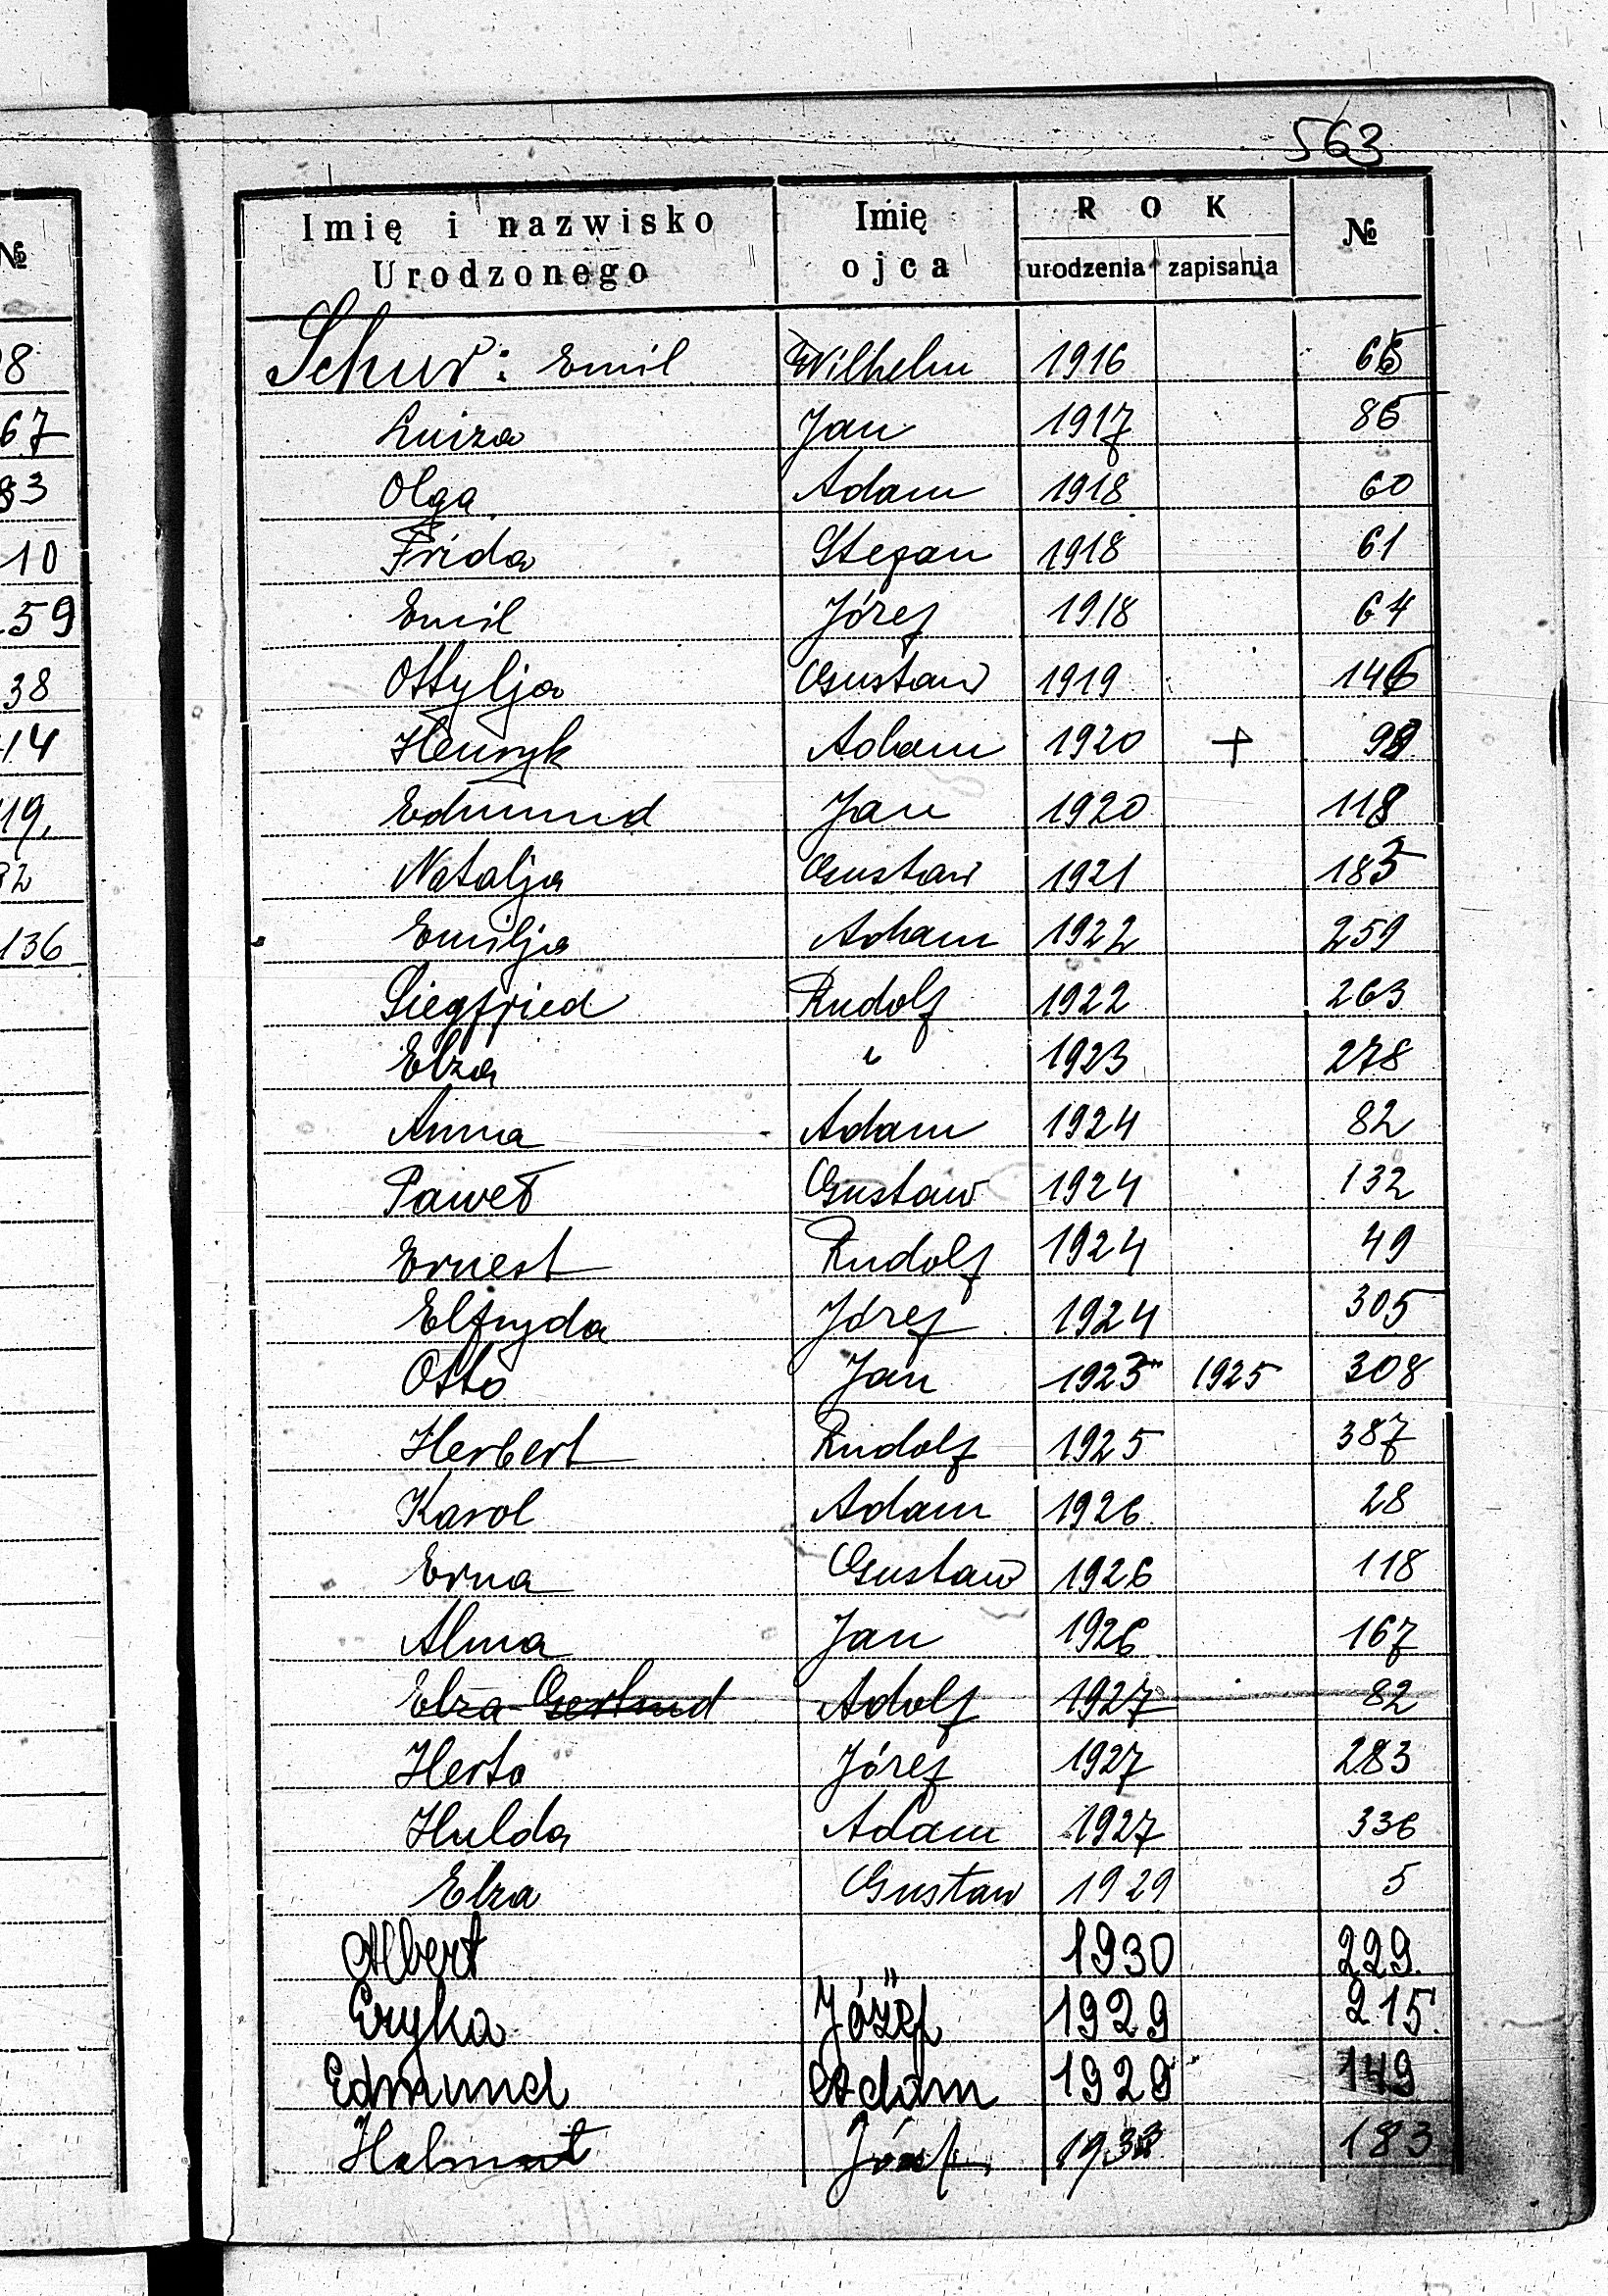 563
№
Imię i nazwisko Urodzonego
Imię ojca
ROK
urodzenia
zapisania
№
Schur: Emil Wilhelm 1916 65
Luiza Jan 1917 86
Olga Adam 1918 60
Frida Stefan 1918 61
Emil Józef 1918 64
Ottylja Gustaw 1919 146
Henryk Adam 1920 + 98
Edmund Jan 1920 118
Natalja Gustaw 1921 185
Emilja Adam 1922 259
Siegfried Rudolf 1922 263
Elza " 1923 278
Anna Adam 1924 82
Paweł Gustaw 1924 132
Ernest Rudolf 1924 49
Elfryda Józef 1924 305
Otto Jan 1925 1925 308
Herbert Rudolf 1925 387
Karol Adam 1926 28
Erna Gustaw 1926 118
Alma Jan 1926 167
Elza Gertrud Adolf 1927 82
Herta Józef 1927 283
Hulda Adam 1927 336
Elza Gustaw 1929 5
Albert " 1930 229
Eryka Józef 1929 215
Edmund Adam 1929 149
Helmut Józef 183
8
67
83
10
59
38
14
19
32
136